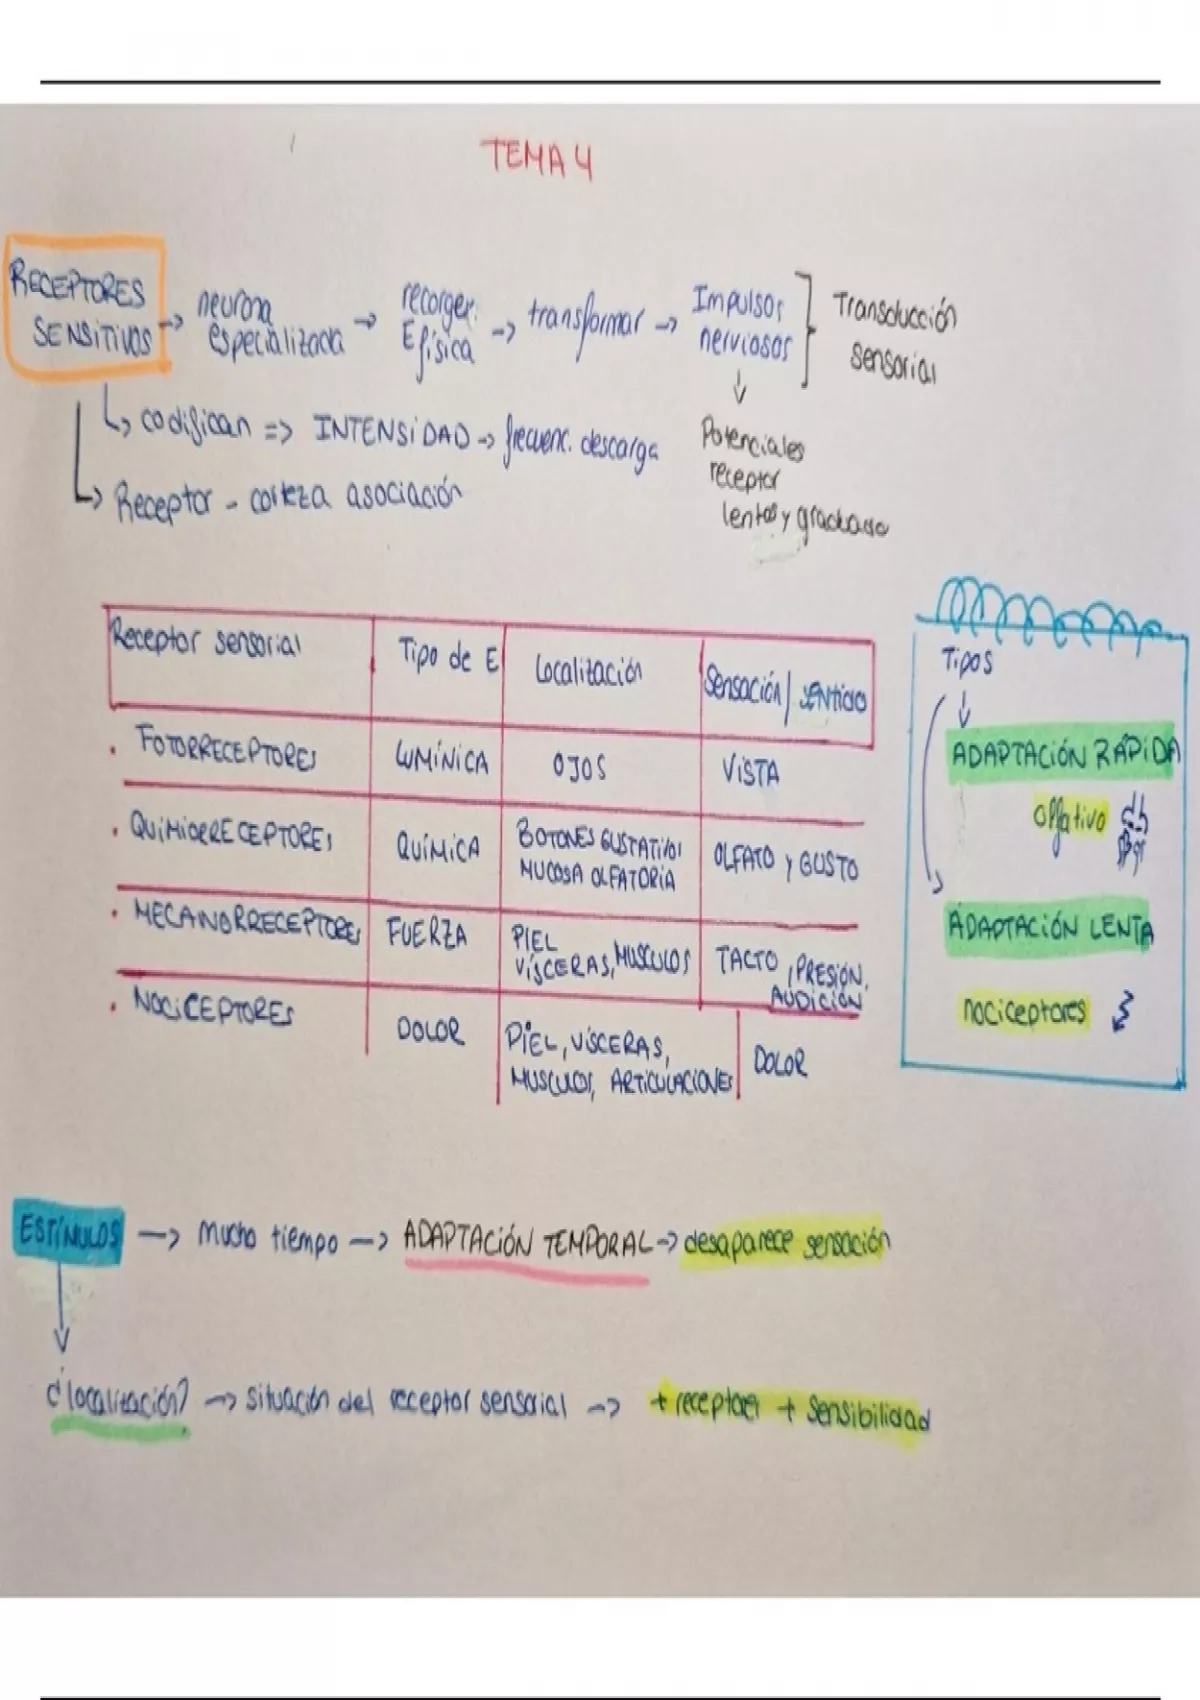 TEMA 4
RECEPTORES
SENSITIVOS
→ neurona
especializada
→ recorger:
E física
→ transformar →
Impulsos
nerviosos
Transducción
sensorial
↳ codifican => INTENSIDAD → frecuenc. descarga
↳ Receptor - corteza asociación
↓
Potenciales
receptor
lentos y graduado
Receptor sensorial | Tipo de E | Localitación | Sensación / SENTIDO
• FOTORRECEPTORES | LUMÍNICA | OJOS | VISTA
• QUIMIORRECEPTORES | QUÍMICA | BOTONES GUSTATIVOS | OLFATO y GUSTO
MUCOSA OLFATORIA
• MECANORRECEPTORES | FUERZA | PIEL | TACTO, PRESIÓN,
VÍSCERAS, MUSCULOS | AUDICIÓN
• NOCICEPTORES | DOLOR | PIEL, VÍSCERAS, | DOLOR
MUSCULOS, ARTICULACIONES
TIPOS
↓
ADAPTACIÓN RÁPIDA
olfativo
ADAPTACIÓN LENTA
nociceptores
ESTÍMULOS → mucho tiempo → ADAPTACIÓN TEMPORAL → desaparece sensación
↓
¿localización? → situación del receptor sensorial → + receptores + sensibilidad